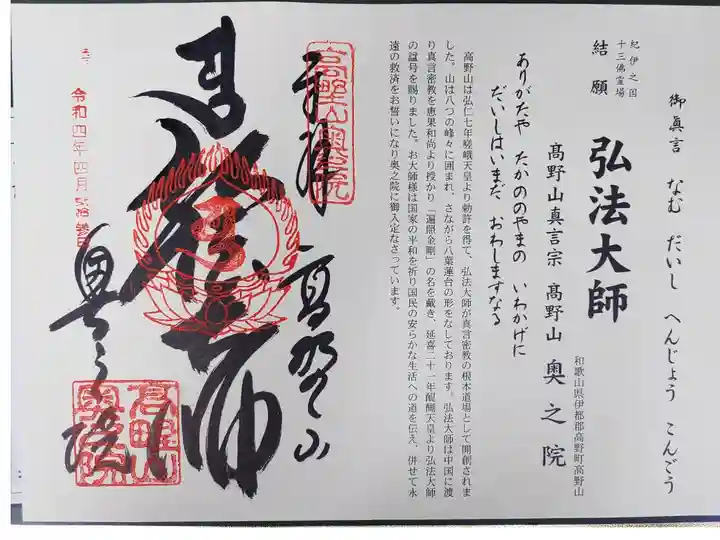 御真言 なむ だいし へんじょう こんごう
紀伊之国
十三佛霊場
結願 弘法大師
和歌山県伊都郡高野町高野山
高野山真言宗 高野山 奥之院
ありがたや たかののやまの いわかげに
だいしはいまだ おわしますなる
高野山は弘仁七年嵯峨天皇より勅許を得て、弘法大師が真言密教の根本道場として開創されま
した。山は八つの峰々に囲まれ、さながら八葉蓮台の形をなしております。弘法大師は中国に渡
り真言密教を恵果和尚より授かり「遍照金剛」の名を戴き、延喜二十一年醍醐天皇より弘法大師
の諡号を賜りました。お大師様は国家の平和を祈り国民の安らかな生活への道を伝え、併せて永
遠の救済をお誓いになり奥之院に御入定なさっています。
奉拝 高野山
高野山奥院
弘法大師
奥之院
高野山
奥之院
令和四年四月